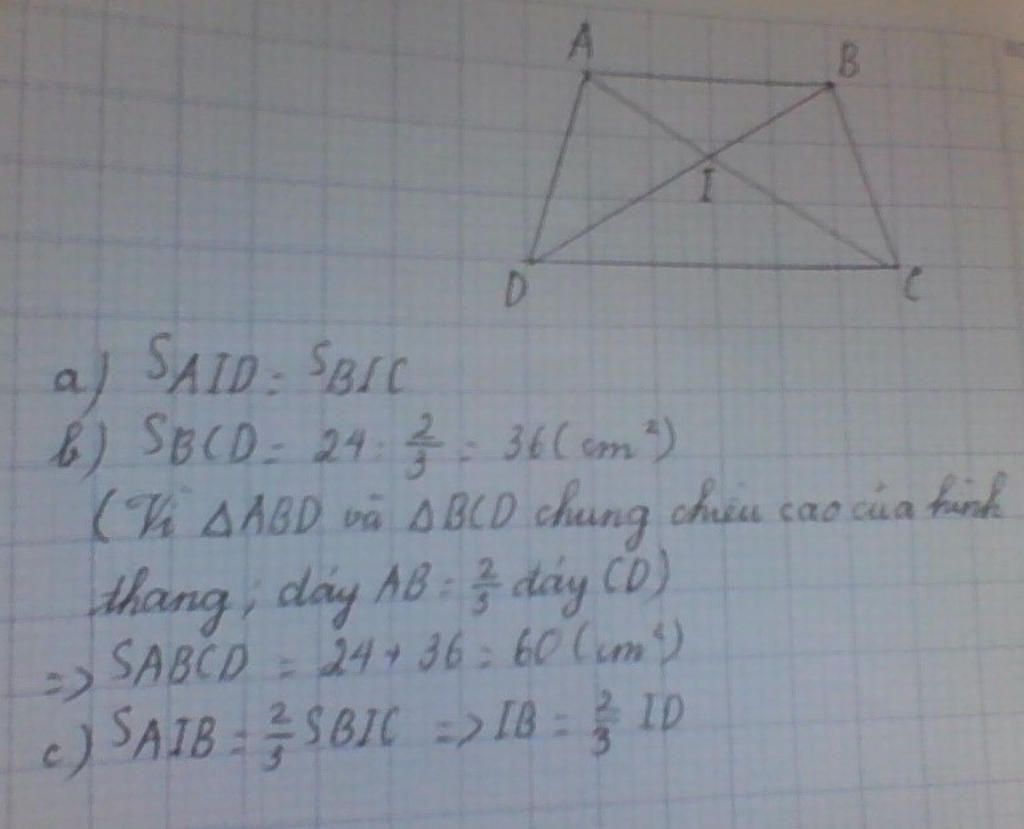 A
B
I
D
C
a) SAID = SBIC
b) SBCD = 24 : 2/3 = 36 (cm²)
(Vì ΔABD và ΔBCD chung chiều cao của hình
thang; đáy AB = 2/3 đáy CD)
=> SABCD = 24 + 36 = 60 (cm²)
c) SAIB = 2/3 SBIC => IB = 2/3 ID